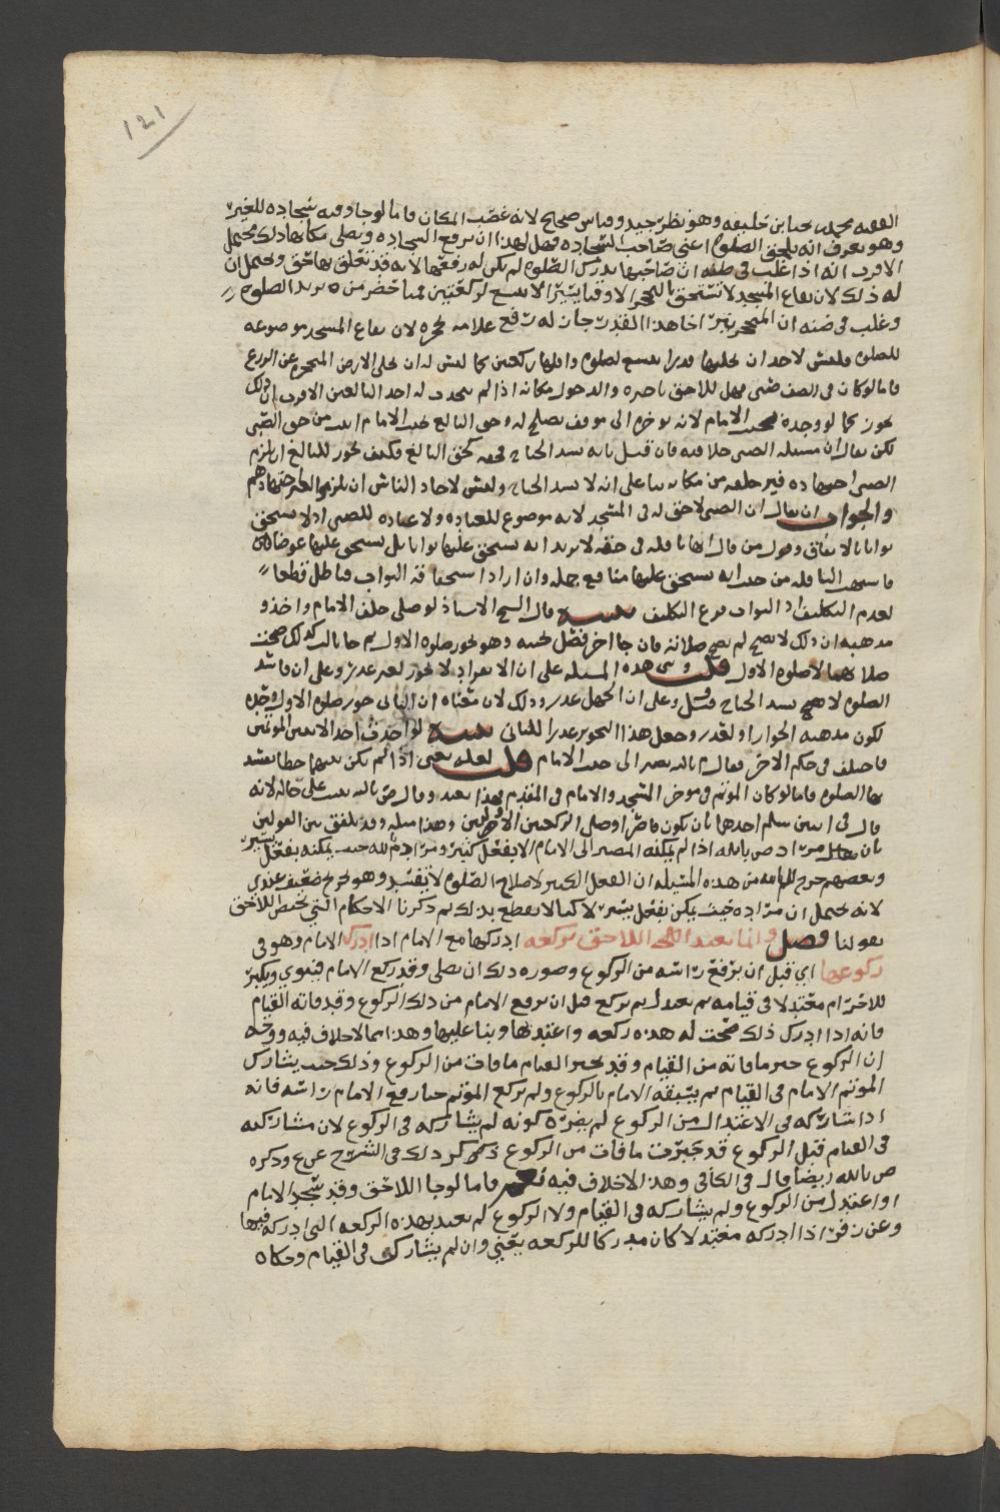 ١٢١
الفقيه محمد بن يحيا بن خليفه وهو نظر جيد وقياس صحيح لانه غصب المكان فاما لو جا وفيه سجاده للغير
وهو يعرف انه يلحق الصلوه اعني صاحب السجاده فهل لهذا ان يرفع السجاده ويصلي مكانها ذلك محتمل
الاقرب انه اذا غلب في ظنه ان صاحبها يدرك الصلوه لم يكن له رفعها لانه قد تعلق بها حق ويحتمل ان
له ذلك لان بقاع المسجد لا تستحق بالتحجر الا وقتا يسيرا لا يتسع لركعتين فمتا حضر من يريد الصلوه
وغلب في ضنه ان المتحجر يتراخا هذا القدر جاز له رفع علامه تحجره لان بقاع المسجد موضوعه
للصلوه فليس لاحد ان يحليها قدرا يتسع لصلوه واقلها ركعتين كما ليس له ان يحلي الارض المتحجره عن الزرع
فاما لو كان في الصف صبي فهل للاحق تاخيره والدخول مكانه اذا لم يجد له احد البالغين الاقرب ان ذلك
يجوز كما لو وجده بجنب الامام لانه يوخره الى موقف يصلح له وحق البالغ بجنب الامام اثبت من حق الصبي
لكن يقال ان مسئله الصبي خلافيه فان قيل بانه يسد الجناح فحقه كحق البالغ فكيف يجوز للبالغ ان يلزم
الصبي اجتهاده فيزحلقه من مكانه بنا على انه لا يسد الجناح وليس لاحاد الناس ان يلزموا الغير اجتهادهم
والجواب ان يقال ان الصبي لا حق له في المسجد لانه موضوع للعباده ولا عباده للصبي اذ لا يستحق
ثوابا بالاتفاق وقول من قال انها نافله في حقه لا يريد انه يستحق عليها ثوابا بل يستحق عليها عوضا
فاشبهت النافله من حيث انه يستحق عليها منافع جمله وان اراد استحقاقه الثواب فباطل قطعا
لعدم التكليف اذ الثواب فرع التكليف تنبيه قال الشيخ الاستاذ لو صلى خلف الامام واحد و
مذهبه ان ذلك لا يصح لم تصح صلاته فان جا اخر فصل جنبه وهو يجوز صلوه الاول ثم جا ثالث كذلك صحت
صلاتهما لا صلوه الاول قلت وبنى هذه المسئله على ان الانفراد لا يجوز لغير عذر وعلى ان فاسد
الصلوه لا يسد الجناح وعلى ان الجهل عذر وذلك لان معناه ان الثاني جوز صلوه الاول وتجده
لكون مذهبه الجواز او لعذر وجعل هذا التجويز عذرا للثاني تنبيه لو احدث احد الاثنين المؤتمين
فاختلف في حكم الاخر فقال م بالله يصير الى جنب الامام قلت لعله يعني اذا لم تكن بينهما خطا تفسد
بها الصلوه فاما لو كان المؤتم في موخر المسجد والامام في المقدم فهذا بعيد وقال ص بالله يثبت على حاله لانه
قال في اثنين سلم احدهما بان يكون قاصرا وصلى الركعتين الاولتين وهذا مثله وقد يلفق بين القولين
بان يقال مراد ص بالله اذا لم يمكنه المصير الى الامام الا بفعل كثير ومراد م بالله حيث يمكنه بفعل يسير
وبعضهم خرج للم بالله من هذه المسئله ان الفعل الكثير لاصلاح الصلوه لا يفسد وهو تخريج ضعيف عندي
لانه يحتمل ان مراده حيث يمكن بفعل يسير لا كما لا يقطع بذلك ثم ذكرنا الاحكام التي تخص اللاحق
بقولنا فصل وانما يعتد اللاحق بركعه ادركها مع الامام اذا ادرك الامام وهو في
ركوعها اي قبل ان يرفع راسه من الركوع وصوره ذلك ان يصلي وقد ركع الامام فينوي ويكبر
للاحرام معتدلا في قيامه ثم يعتدل ثم يركع قبل ان يرفع الامام من ذلك الركوع وقد فاته القيام
فانه اذا ادرك ذلك صحت له هذه ركعه واعتد بها وبنا عليها وهذا مما لا خلاف فيه ووجهه
ان الركوع جبر ما فاته من القيام وقد يجبر القيام ما فات من الركوع وذلك حيث يشارك
المؤتم الامام في القيام ثم يسبقه الامام بالركوع ولم يركع المؤتم حتا رفع الامام راسه فانه
اذا شاركه في الاعتدال من الركوع لم يضره كونه لم يشاركه في الركوع لان مشاركته
في القيام قبل الركوع قد جبرت ما فات من الركوع ذكر ذلك في الشرح عن ع وذكره
ص بالله ايضا قال في الكافي وهذا لا خلاف فيه نعم فاما لو جا اللاحق وقد سجد الامام
او اعتدل من الركوع ولم يشاركه في القيام ولا الركوع لم يعتد بهذه الركعه التي ادركه فيها
وعن زفر اذا ادركه معتدلا كان مدركا للركعه يعني وان لم يشاركه في القيام وحكاه